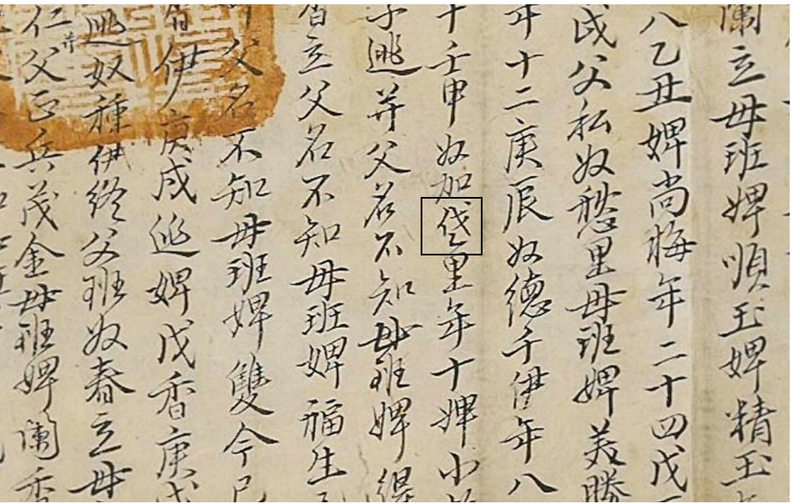 蘭立母班婢順玉婢精玉
八乙丑婢尚梅年二十四戊
戌父私奴里母班婢美勝
年十二庚辰奴德千伊年八
十壬申奴加里年十婢小
逃并父名不知母班婢
立父名不知母班婢福生
父名不知母班婢雙今
伊庚戌逃婢戊香庚戌
逃奴種伊終父班奴春立母
仁父正兵茂金母班婢蘭香